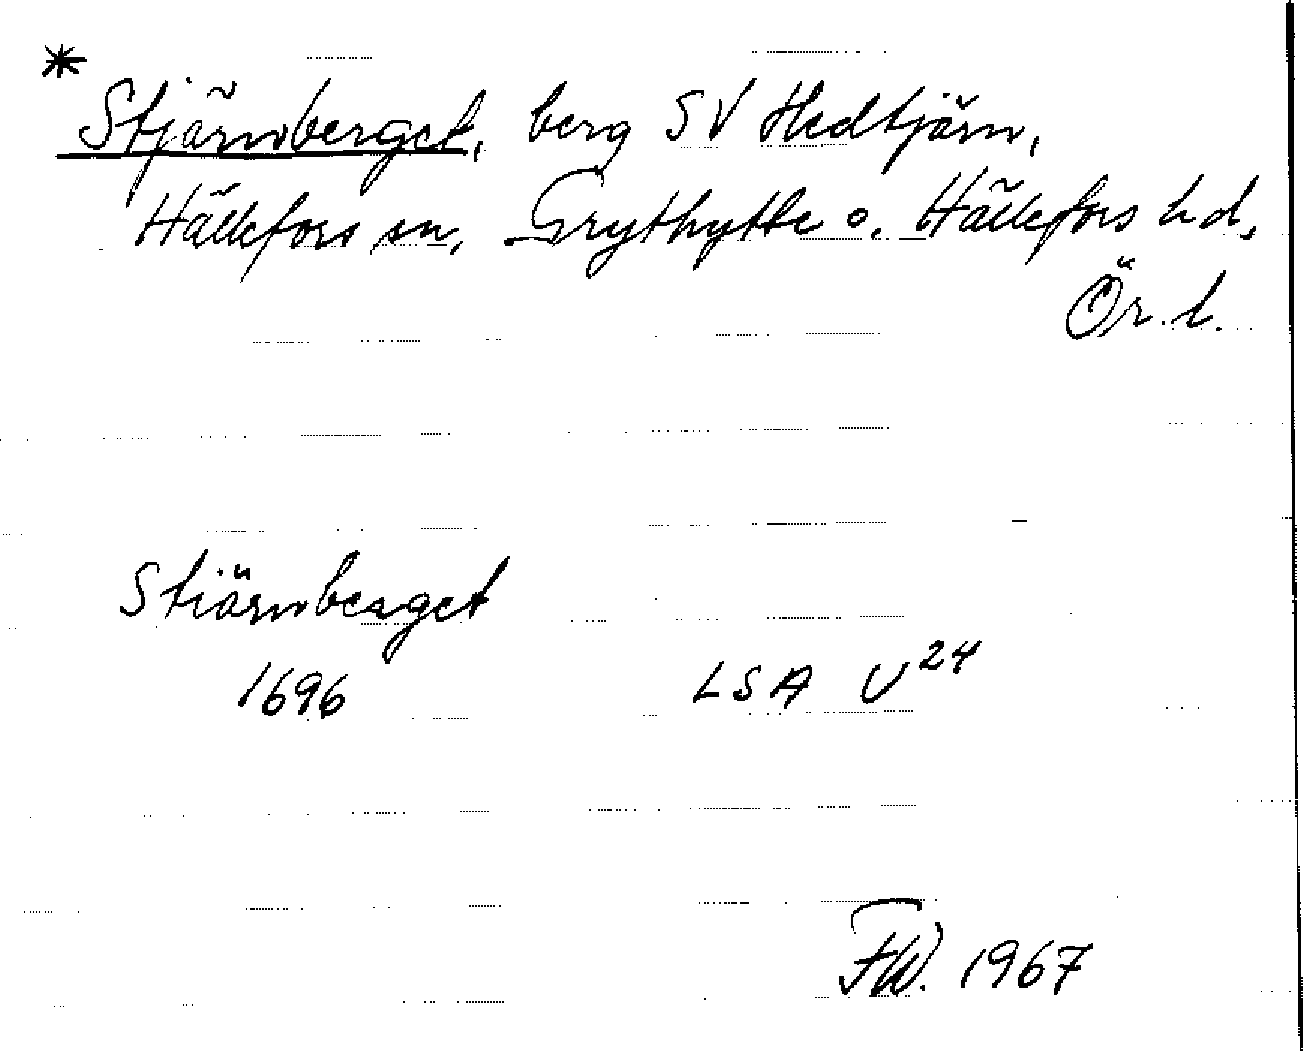 *
Stjärnberget, berg SV Hedtjärn,
Hällefors sn, Grythytte o. Hällefors hd,
Ör. l.
Stiärnberget
1696 LSA U 24
FW. 1967